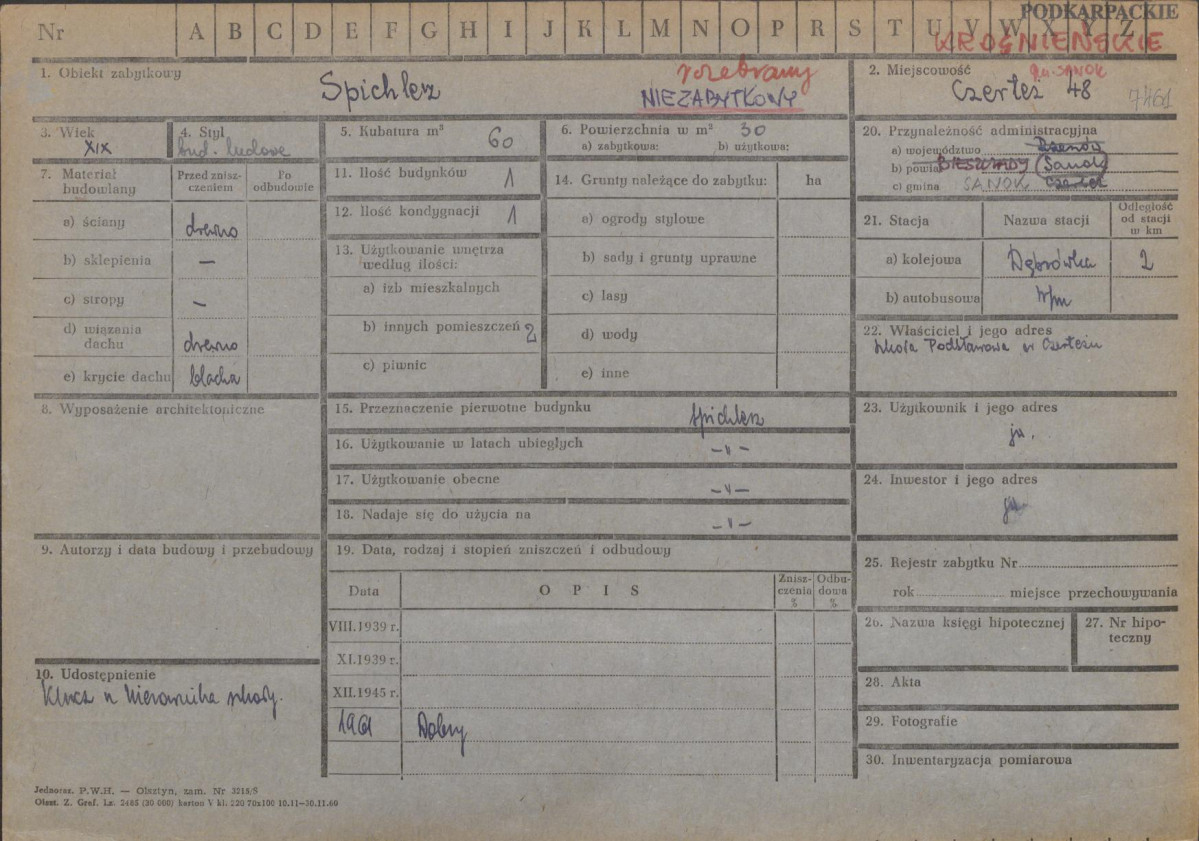 PODKARPACKIE
Nr A B C D E F G H I J K L M N O P R S T U V W X Y Z
KROŚNIEŃSKIE
1. Obiekt zabytkowy
Spichlerz
rozebrany
NIEZABYTKOWY
2. Miejscowość
gm. SANOK
Czerteż 48
7461
3. Wiek
XIX
4. Styl
bud. ludowe
5. Kubatura m³ 60
6. Powierzchnia w m² 30
a) zabytkowa: b) użytkowa:
20. Przynależność administracyjna
a) województwo Rzeszów
b) powiat BIESZCZADY Sanok
c) gmina SANOK Czerteż
7. Materiał budowlany
Przed zniszczeniem
Po odbudowie
a) ściany drewno
b) sklepienia —
c) stropy —
d) wiązania dachu drewno
e) krycie dachu blacha
11. Ilość budynków 1
12. Ilość kondygnacji 1
13. Użytkowanie wnętrza według ilości:
a) izb mieszkalnych
b) innych pomieszczeń 2
c) piwnic
14. Grunty należące do zabytku: ha
a) ogrody stylowe
b) sady i grunty uprawne
c) lasy
d) wody
e) inne
21. Stacja
Nazwa stacji
Odległość od stacji w km
a) kolejowa Dąbrówka 2
b) autobusowa
22. Właściciel i jego adres
Szkoła Podstawowa w Czerteżu
8. Wyposażenie architektoniczne
15. Przeznaczenie pierwotne budynku
spichlerz
16. Użytkowanie w latach ubiegłych
– " –
17. Użytkowanie obecne
– " –
18. Nadaje się do użycia na
– " –
23. Użytkownik i jego adres
jw.
24. Inwestor i jego adres
jw.
9. Autorzy i data budowy i przebudowy
19. Data, rodzaj i stopień zniszczeń i odbudowy
Data
O P I S
Zniszczenia %
Odbudowa %
VIII.1939 r.
XI.1939 r.
XII.1945 r.
1961 Dobry
25. Rejestr zabytku Nr
rok miejsce przechowywania
26. Nazwa księgi hipotecznej
27. Nr hipoteczny
10. Udostępnienie
Klucz u kierownika szkoły.
28. Akta
29. Fotografie
30. Inwentaryzacja pomiarowa
Jednoraz. P.W.H. — Olsztyn, zam. Nr 3215/S
Olszt. Z. Graf. Lz. 2485 (30 000) karton V kl. 220 70x100 10.11—30.11.60